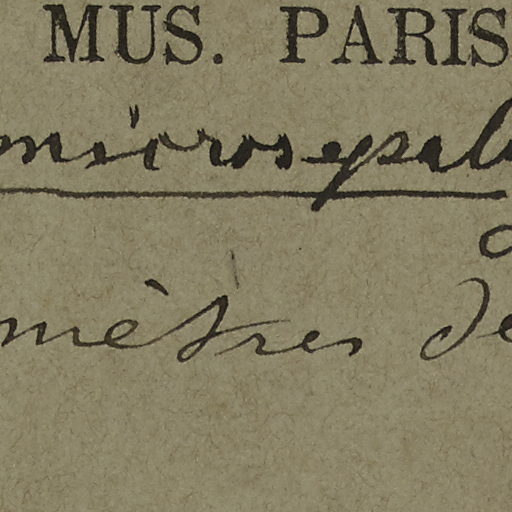 MUS. PARIS
microsepal
mètres de